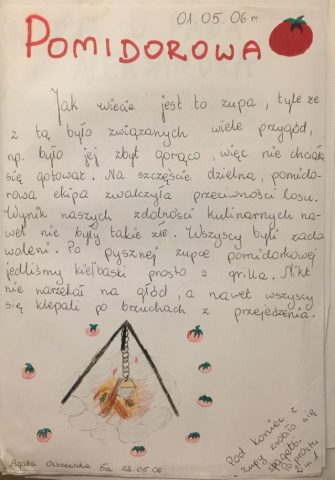 01.05.06 r
POMIDOROWA
Jak wiecie jest to zupa, tyle że
z tą było związanych wiele przygód,
np. było jej zbyt gorąco, więc nie chciała
się gotować. Na szczęście dzielna, pomido-
rowa ekipa zwalczyła przeciwności losu.
Wynik naszych zdolności kulinarnych na-
wet nie były takie złe. Wszyscy byli zado
woleni. Po pysznej zupce pomidorkowej
jedliśmy kiełbaski prosto z grilla. Nikt
nie narzekał na głód, a nawet wszyscy
się klepali po brzuchach z przejedzenia.
Pod koniec z
zupy zrobiło się
spagetti. Po prostu
2 in 1
Agata Olszewska 5a 02.05.06